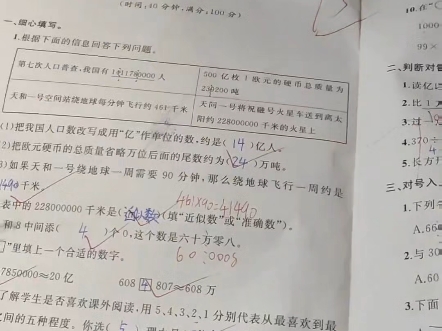 (时间:40分钟,满分:100分)
一、细心填写。
1.根据下面的信息回答下列问题。
第七次人口普查,我国有 人
500亿枚1欧元的硬币总质量为
230200吨
天和一号空间站绕地球每分钟飞行约461千米
天问一号将祝融号火星车送到离太
阳约228000000千米的火星上
(1)把我国人口数改写成用“亿”作单位的数,约是( 14 )亿人。
(2)把欧元硬币的总质量省略万位后面的尾数约为( 24 )万吨。
(3)如果天和一号绕地球一周需要90分钟,那么绕地球飞行一周约是
41490千米。
461×90=41490
表中的228000000千米是(近似数)(填“近似数”或“准确数”)。
和8中间添( 4 )个0,这个数是六十万零八。
”里填上一个合适的数字。
7850000≈20亿
608 4 807≈608万
了解学生是否喜欢课外阅读,用5、4、3、2、1分别代表从最喜欢到最
间的五种程度。你选( 5 )
10.在“
1000
99×
二、判断对错
1.读亿
2.比1
3.过
4.370÷
5.长方
三、对号入
1.下列
A.66
2.与30
A.60
3.下面